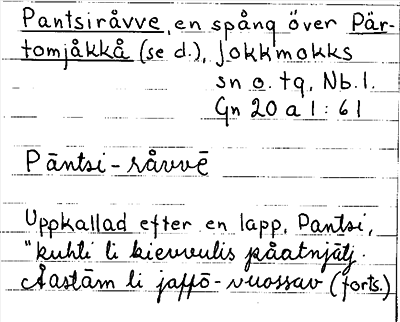 Pantsiråvve, en spång över Pär-
tomjåkkå (se d.), Jokkmokks
sn o. tg, Nb. l.
Gn 20 a 1 : 61
Pāntsi - råvvē
Uppkallad efter en lapp, Pantsi,
"kuhti li kievvulis påatnjātj.
Aastām li jaffō - vuossav (forts.)